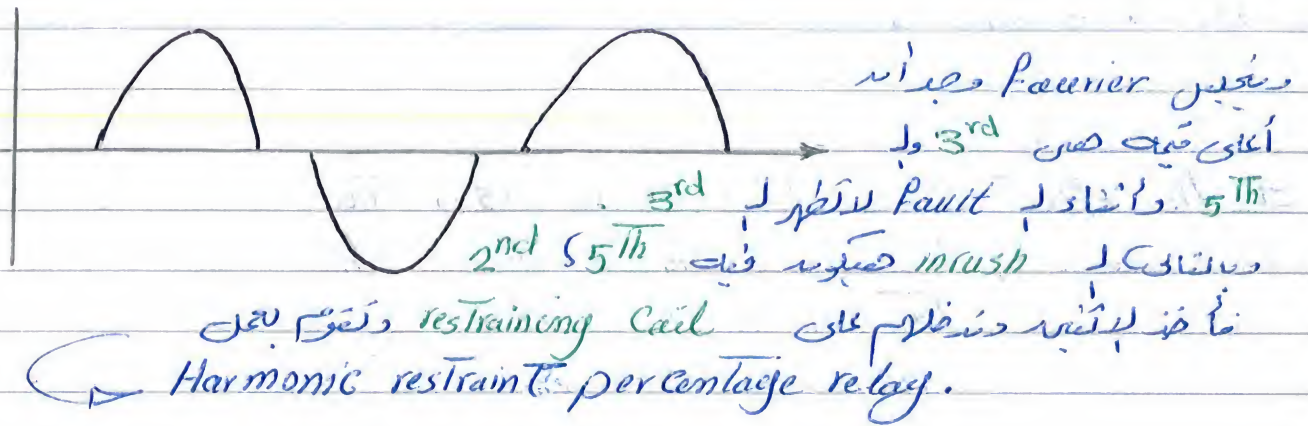 وبتحليل Fourier وجد أن
أعلى قيمة هى 3rd ولـ
5Th وأثناء لـ Fault لا تظهر لـ 3rd .
وبالتالى لـ inrush هيكون فيه 5Th و 2nd
فأخذ لإثنين وندخلهم على restraining Coil وتقوم بعمل
Harmonic restraint percentage relay.